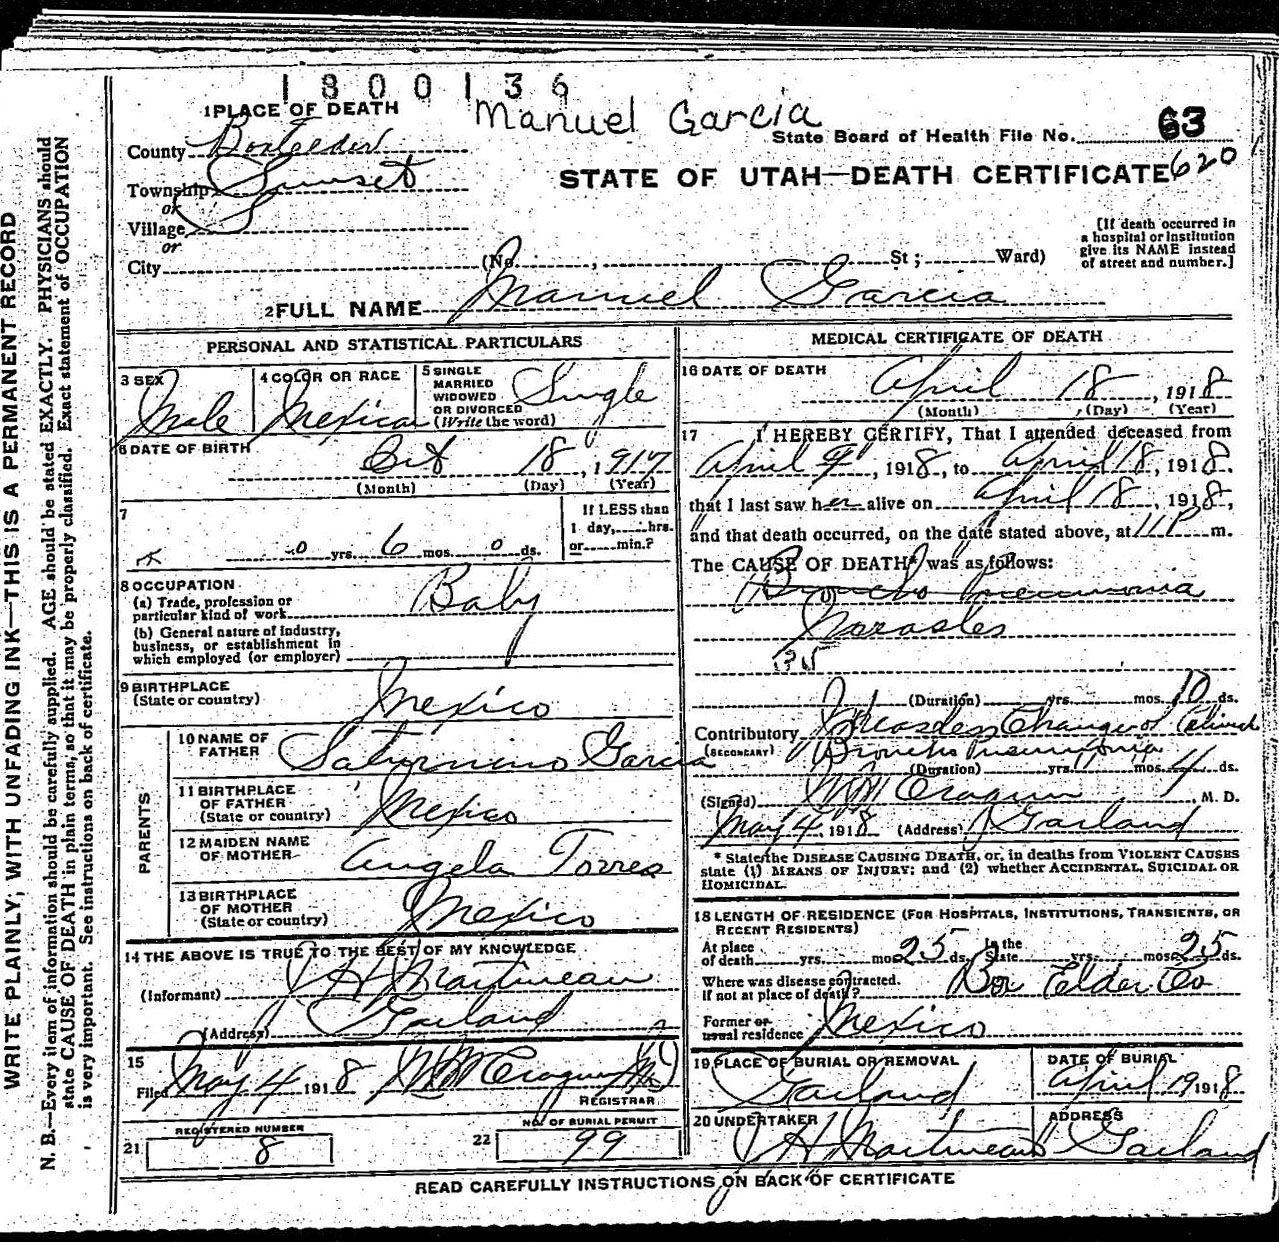 1 8 0 0 1 3 6
Manuel Garcia
1 PLACE OF DEATH
State Board of Health File No. 63
County Box Elder
STATE OF UTAH—DEATH CERTIFICATE 620
Township Sunset
or
Village
or
City (No. , St ; Ward)
[If death occurred in
a hospital or institution
give its NAME instead
of street and number.]
2 FULL NAME Manuel Garcia
PERSONAL AND STATISTICAL PARTICULARS
3 SEX Male
4 COLOR OR RACE Mexican
5 SINGLE
MARRIED
WIDOWED
OR DIVORCED
(Write the word) Single
6 DATE OF BIRTH Oct 18, 1917
(Month) (Day) (Year)
7
0 yrs. 6 mos. 0 ds.
If LESS than
1 day, hrs.
or min.?
8 OCCUPATION
(a) Trade, profession or
particular kind of work Baby
(b) General nature of industry,
business, or establishment in
which employed (or employer)
9 BIRTHPLACE
(State or country) Mexico
PARENTS
10 NAME OF
FATHER Saturnino Garcia
11 BIRTHPLACE
OF FATHER
(State or country) Mexico
12 MAIDEN NAME
OF MOTHER Angela Torres
13 BIRTHPLACE
OF MOTHER
(State or country) Mexico
14 THE ABOVE IS TRUE TO THE BEST OF MY KNOWLEDGE
(Informant) J H Martineau
(Address) Garland
15
Filed May 4 1918
REGISTRAR
REGISTERED NUMBER
21 8
NO. OF BURIAL PERMIT
22 99
MEDICAL CERTIFICATE OF DEATH
16 DATE OF DEATH
April 18, 1918
(Month) (Day) (Year)
17 I HEREBY CERTIFY, That I attended deceased from
April 9, 1918, to April 18, 1918.
that I last saw her alive on April 18, 1918,
and that death occurred, on the date stated above, at 11 P m.
The CAUSE OF DEATH* was as follows:
Broncho Pneumonia
Measles
(Duration) yrs. mos. 10 ds.
Contributory Measles Change of
(SECONDARY) Broncho Pneumonia
(Duration) yrs. mos. 4 ds.
(Signed) M. D.
May 4, 1918 (Address) Garland
* State the DISEASE CAUSING DEATH, or, in deaths from VIOLENT CAUSES
state (1) MEANS OF INJURY; and (2) whether ACCIDENTAL, SUICIDAL OR
HOMICIDAL.
18 LENGTH OF RESIDENCE (FOR HOSPITALS, INSTITUTIONS, TRANSIENTS, OR
RECENT RESIDENTS)
At place
of death yrs. mos 25 ds. In the
State yrs. mos 25 ds.
Where was disease contracted.
If not at place of death? Box Elder Co
Former or
usual residence Mexico
19 PLACE OF BURIAL OR REMOVAL
Garland
DATE OF BURIAL
April 19 1918
20 UNDERTAKER
J H Martineau
ADDRESS
Garland
READ CAREFULLY INSTRUCTIONS ON BACK OF CERTIFICATE
WRITE PLAINLY, WITH UNFADING INK—THIS IS A PERMANENT RECORD
N. B.—Every item of information should be carefully supplied. AGE should be stated EXACTLY. PHYSICIANS should
state CAUSE OF DEATH in plain terms, so that it may be properly classified. Exact statement of OCCUPATION
is very important. See instructions on back of certificate.